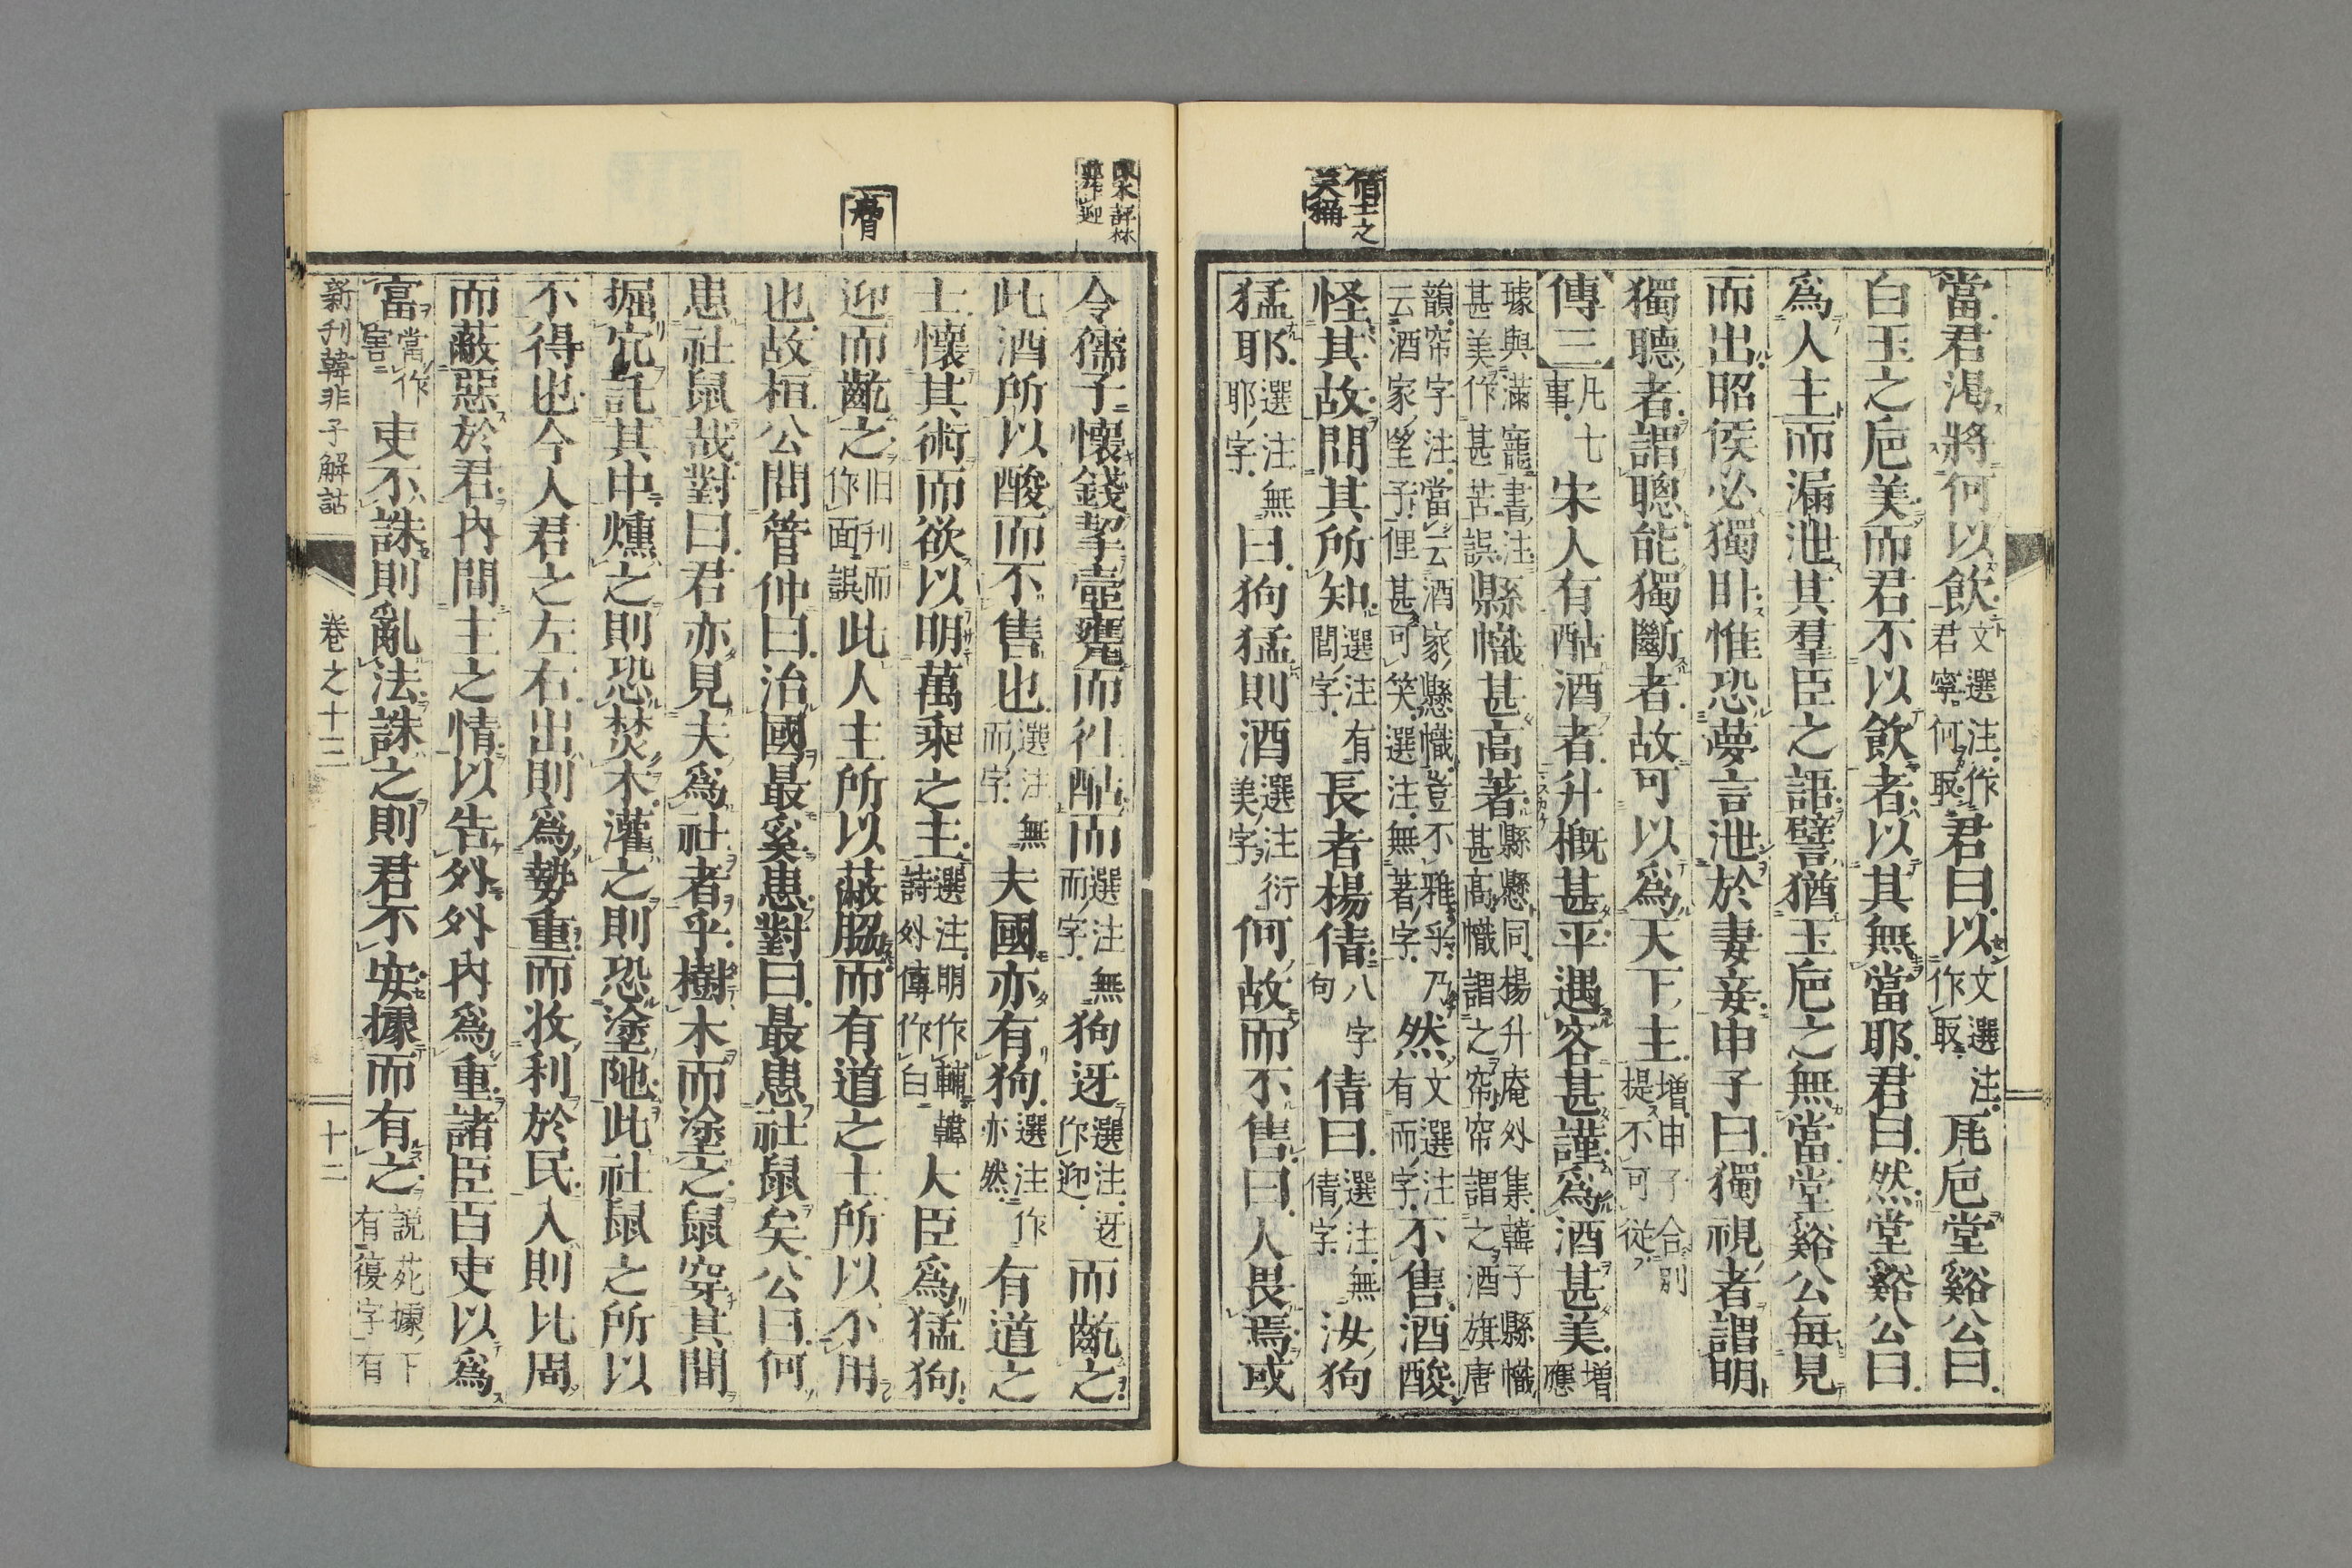 倩士之
美稱
當君渴將何以飲文選注作君寧何取君曰以文選注作取瓦巵堂谿公曰
白玉之巵美而君不以飲者以其無當耶君曰然堂谿公曰
爲人主而漏泄其羣臣之語譬猶玉巵之無當堂谿公每見
而出昭侯必獨卧惟恐夢言泄於妻妾申子曰獨視者謂明
獨聽者謂聰能獨斷者故可以爲天下主増申子合別提不可從
傳三凡七事宋人有酤酒者升概甚平遇客甚謹爲酒甚美増應
璩與滿寵書注甚美作甚苦誤縣幟甚高著縣懸同楊升庵外集韓子縣幟甚高幟謂之帘帘謂之酒旗唐
韻帘字注當云酒家懸幟豈不雅乎乃云酒家望子俚甚可笑選注無著字然文選注有而字不售酒酸
怪其故問其所知選注有閭字長者楊倩八字句倩曰選注無倩字汝狗
猛耶選注無耶字曰狗猛則酒選注衍美字何故而不售曰人畏焉或
評林
迎
脅
令孺子懷錢挈壺甕而往酤而選注無而字狗迓選注迓作迎而齕之
此酒所以酸而不售也選注無而字夫國亦有狗選注作亦然有道之
士懷其術而欲以明萬乘之主選注明作輔韓詩外傳作白大臣爲猛狗
迎而齕之旧刊而作面誤此人主所以蔽脇而有道之士所以不用
也故桓公問管仲曰治國最奚患對曰最患社鼠矣公曰何
患社鼠哉對曰君亦見夫爲社者乎樹木而塗之鼠穿其間
掘穴託其中燻之則恐焚木灌之則恐塗阤此社鼠之所以
不得也今人君之左右出則爲勢重而收利於民入則比周
而蔽惡於君內間主之情以告外外內爲重諸臣百吏以爲
富當作害吏不誅則亂法誅之則君不安據而有之説苑據下有復字有
新刊韓非子解詁 卷之十三 十二